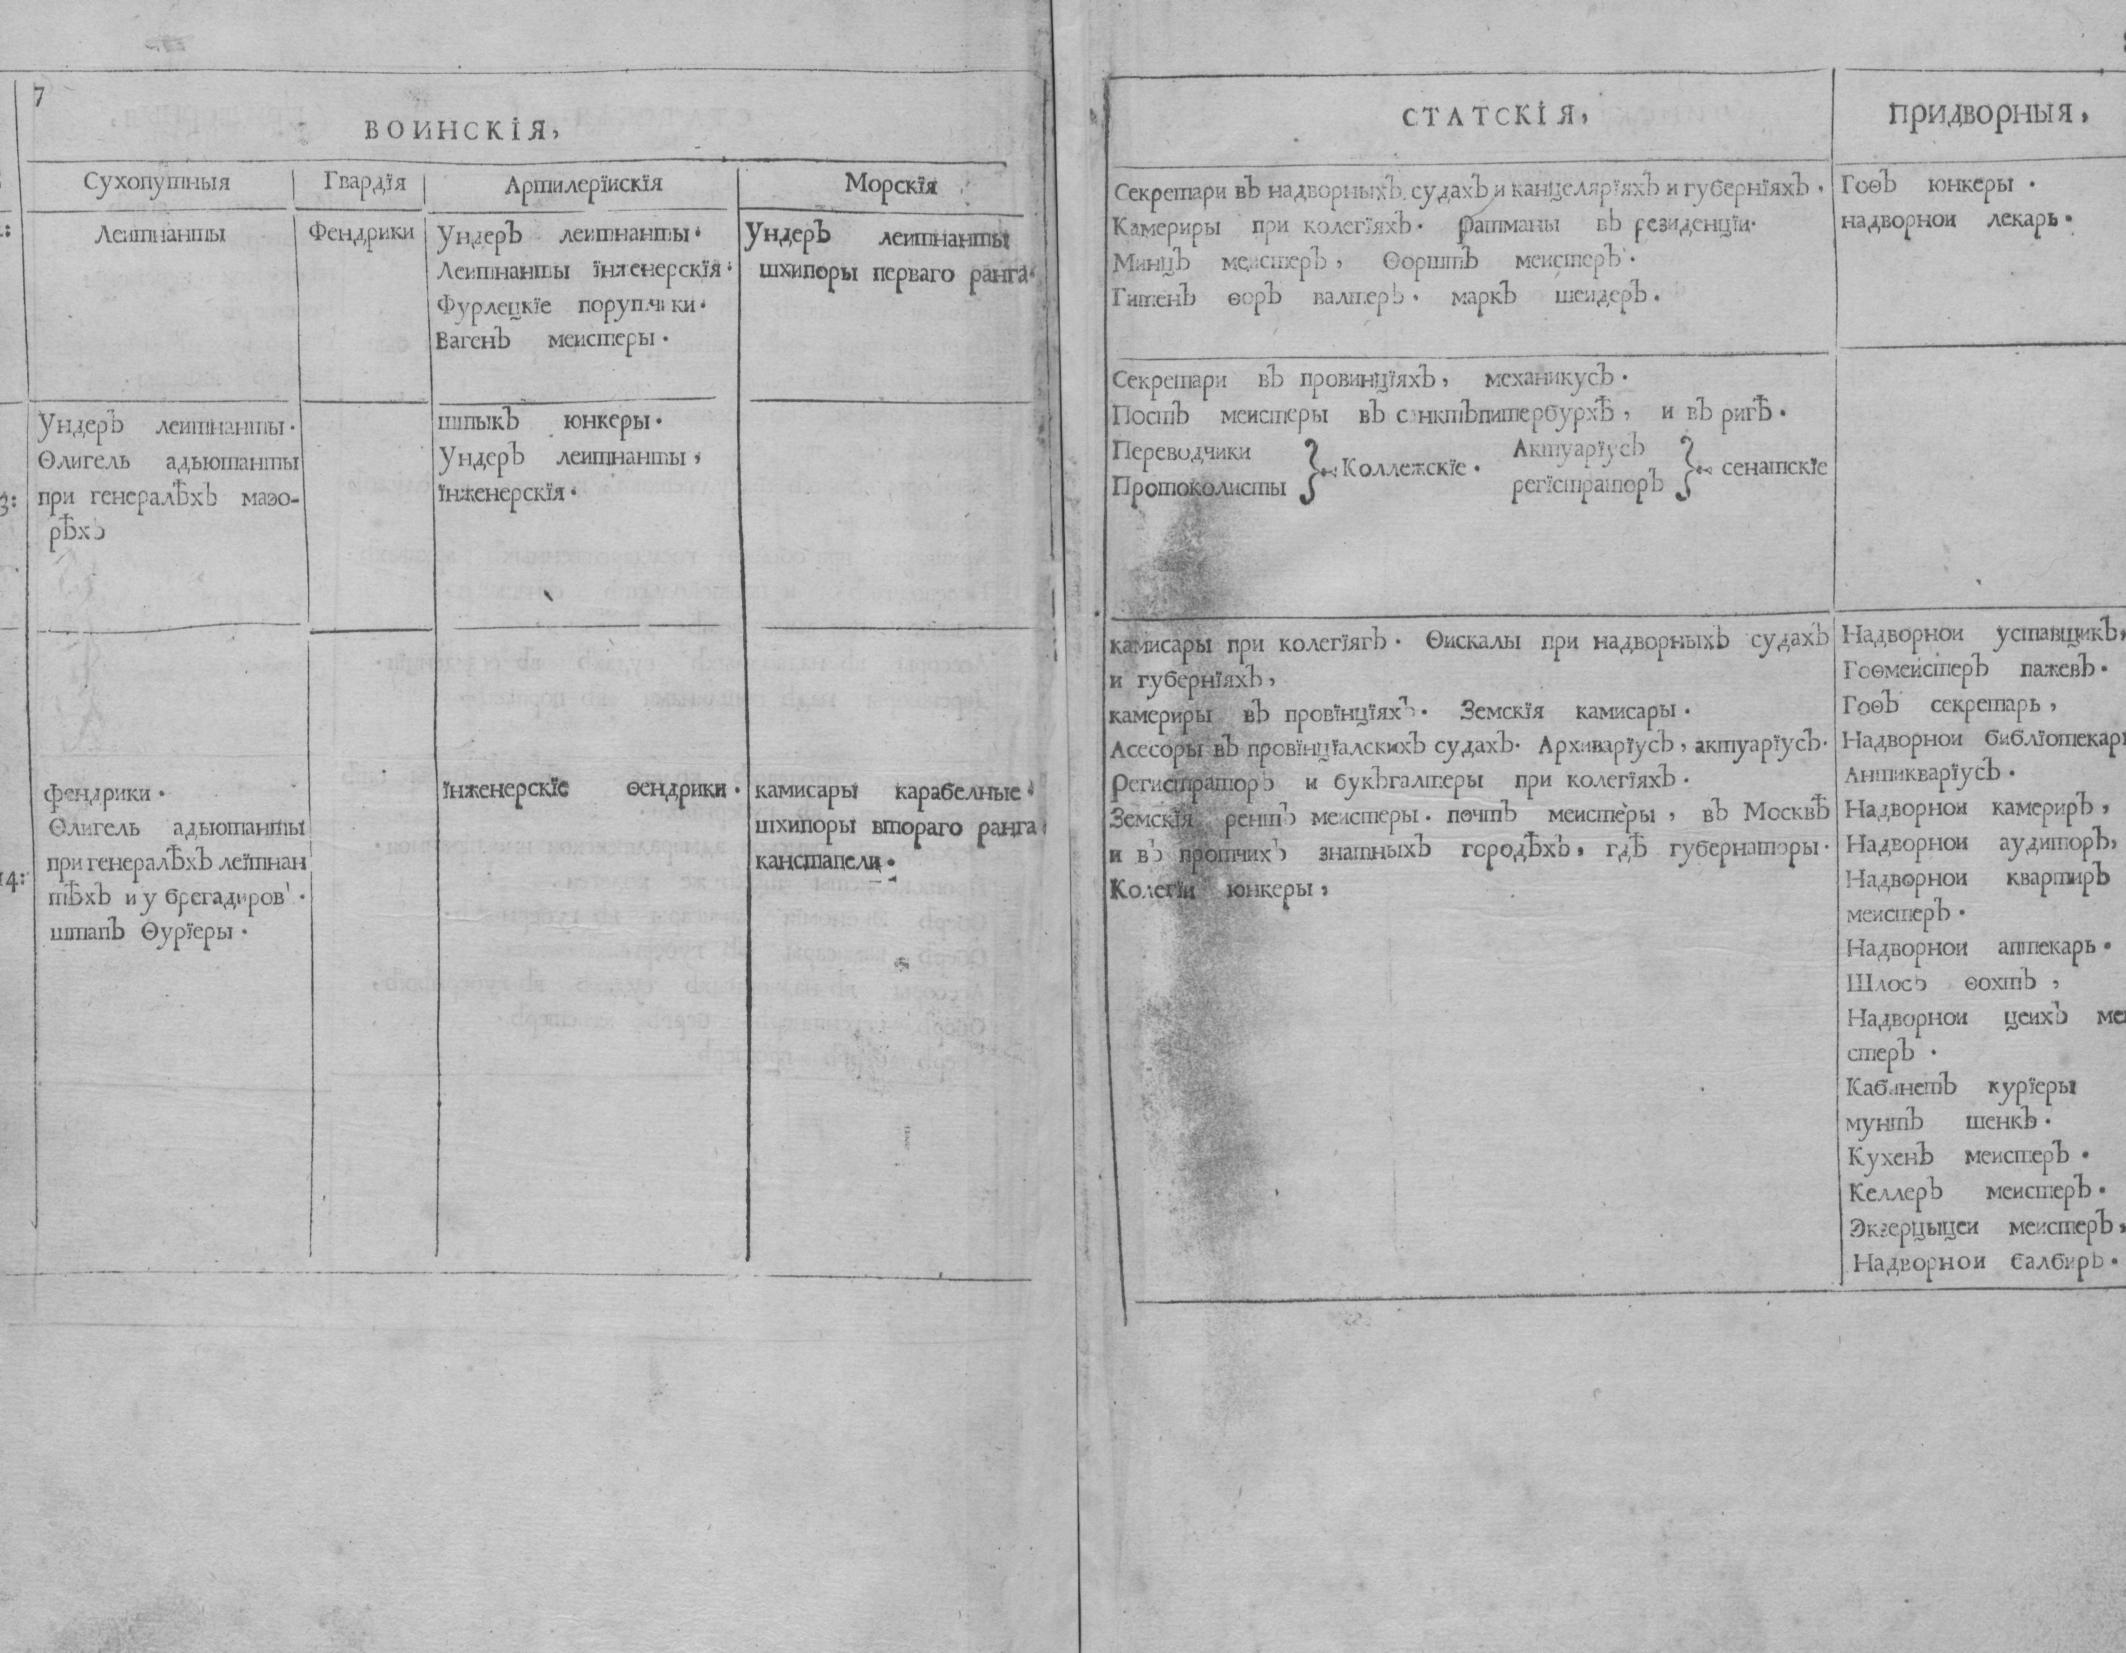 7
ВОИНСКІЯ,
Сухопутныя
Гвардїя
Артилерїискїя
Морскїя
Леитнанты
Фендрики
Ундеръ леитнанты.
Леитнанты їнженерскїя.
Фурлецкїе поручики.
Вагенъ меистеры.
Ундеръ леитнанты
шхипоры перваго ранга.
3:
Ундеръ леитнанты.
Ѳлигель адьютанты
при генералѣхъ маэо-
рѣхъ
шпыкъ юнкеры.
Ундеръ леитнанты,
їнженерскїя.
14:
фендрики.
Ѳлигель адьютанты
при генералѣхъ леїтнан
тѣхъ и у брегадировъ.
штапъ Ѳурїеры.
їнженерскїе ѳендрики.
камисары карабелные.
шхипоры втораго ранга.
канстапели.
СТАТСКІЯ,
Секретари въ надворныхъ судахъ и канцелярїяхъ и губернїяхъ,
Камериры при колегїяхъ. ратманы въ резиденцїи.
Минцъ меистеръ, Ѳорштъ меистеръ.
Гитенъ ѳоръ валтеръ. маркъ шеидеръ.
Секретари въ провинцїяхъ, механикусъ.
Постъ меистеры въ санктъпитербурхѣ, и въ ригѣ.
Переводчики
Протоколисты
Коллежскїе.
Актуарїусъ
регїстраторъ
сенатскїе
камисары при колегїягъ. Ѳискалы при надворныхъ судахъ
и губернїяхъ,
камериры въ провїнцїяхъ. Земскїя камисары.
Асесоры въ провїнцїалскихъ судахъ. Архиварїусъ, актуарїусъ.
Регистраторъ и букъгалтеры при колегїяхъ.
Земскїя рентъ меистеры. почтъ меистеры, въ Москвѣ
и въ протчихъ знатныхъ городѣхъ, гдѣ губернаторы.
Колегїи юнкеры,
ПРИДВОРНЫЯ,
Гоѳъ юнкеры.
надворнои лекарь.
Надворнои уставщикъ,
Гоѳмеистеръ пажевъ.
Гоѳъ секретарь,
Надворнои библїотекарь
Антикварїусъ.
Надворнои камериръ,
Надворнои аудиторъ,
Надворнои квартиръ
меистеръ.
Надворнои аптекарь.
Шлосъ ѳохтъ,
Надворнои цеихъ меи
стеръ.
Кабинетъ курїеры
мунтъ шенкъ.
Кухенъ меистеръ.
Келлеръ меистеръ.
Экзерцыцеи меистеръ,
Надворнои балбиръ.